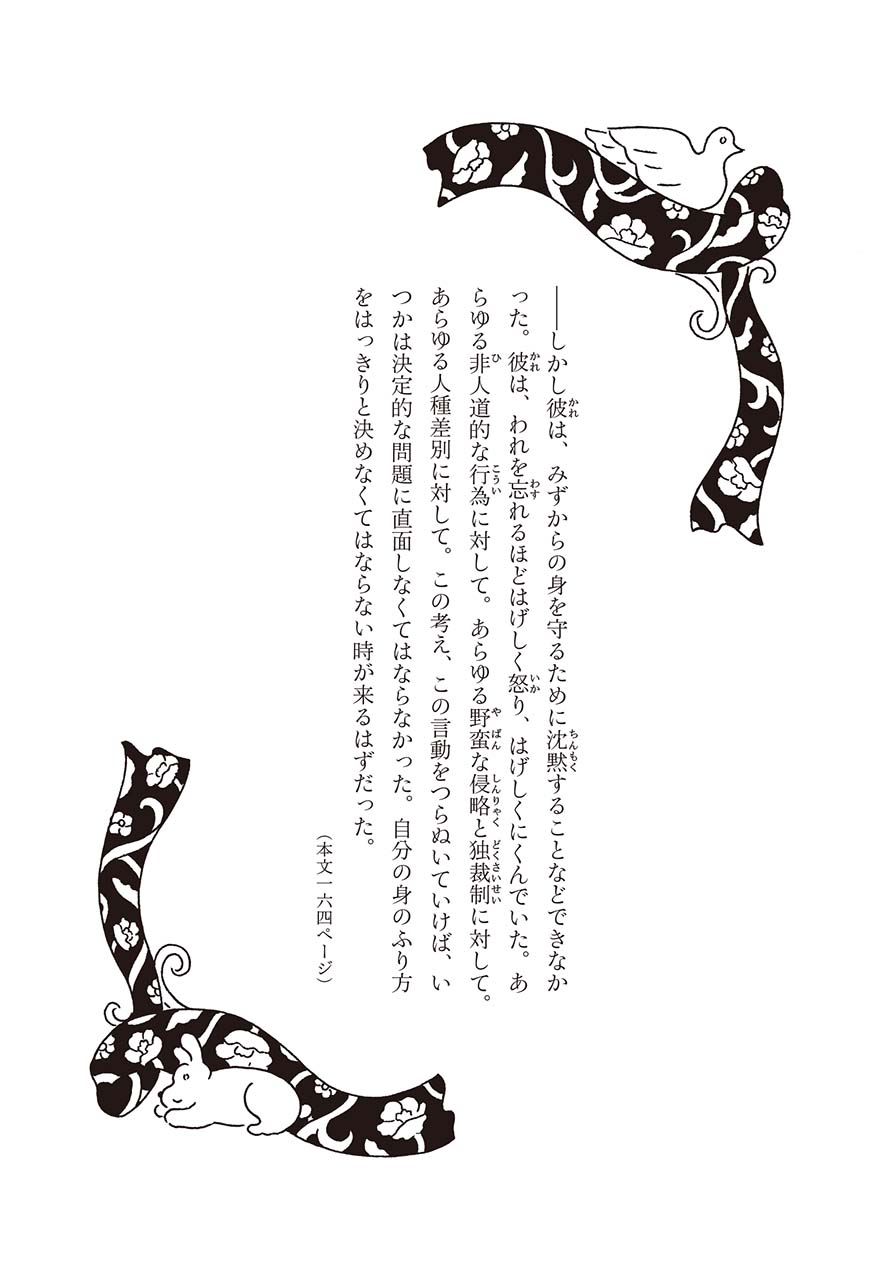 ――しかし彼は、みずからの身を守るために沈黙することなどできなか
った。彼は、われを忘れるほどはげしく怒り、はげしくにくんでいた。あ
らゆる非人道的な行為に対して。あらゆる野蛮な侵略と独裁制に対して。
あらゆる人種差別に対して。この考え、この言動をつらぬいていけば、い
つかは決定的な問題に直面しなくてはならなかった。自分の身のふり方
をはっきりと決めなくてはならない時が来るはずだった。
（本文一六四ページ）